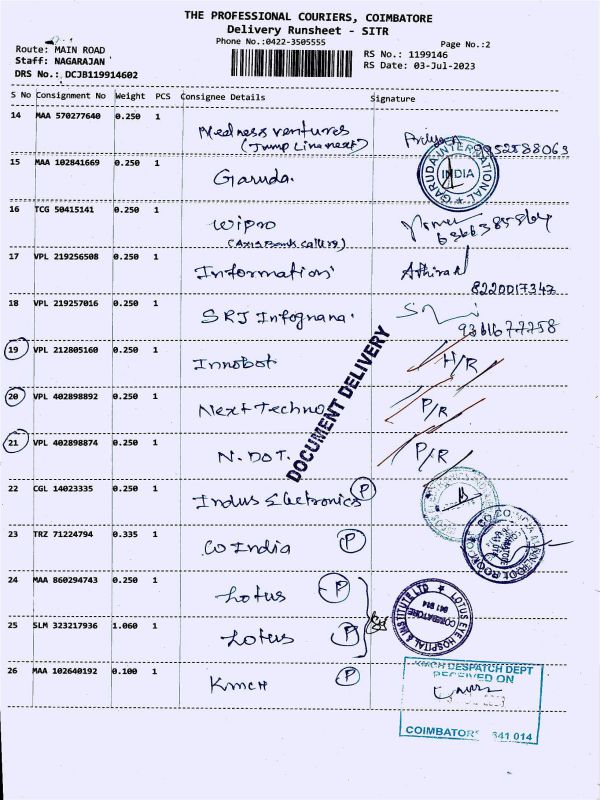 THE PROFESSIONAL COURIERS, COIMBATORE
Delivery Runsheet - SITR
Phone No.:0422-3505555
Page No.:2
Route: MAIN ROAD
RS No.: 1199146
Staff: NAGARAJAN
RS Date: 03-Jul-2023
DRS No.: DCJB119914602
S No Consignment No Weight PCS Consignee Details Signature
14 MAA 570277640 0.250 1 Nedness ventures 9952588063
(Jump Linenext)
15 MAA 102841669 0.250 1 Garuda. GARUDA INTERNATIONAL INDIA
16 TCG 50415141 0.250 1 Wipro
(Axis Bank callers)
17 VPL 219256508 0.250 1 Information
8220017347
18 VPL 219257016 0.250 1 SRJ Infognana.
9361677758
19 VPL 212805160 0.250 1 Innobot H/R
20 VPL 402898892 0.250 1 Next Techno P/R
21 VPL 402898874 0.250 1 N. DOT. P/R
DOCUMENT DELIVERY
22 CGL 14023335 0.250 1 Indus Electronics P
23 TRZ 71224794 0.335 1 Co India P
24 MAA 860294743 0.250 1 Lotus P
LOTUS EYE HOSPITAL & INSTITUTE LTD COIMBATORE 641 014
25 SLM 323217936 1.060 1 Lotus P
26 MAA 102640192 0.100 1 KMCH P
KMCH DESPATCH DEPT
RECEIVED ON
COIMBATORE 641 014